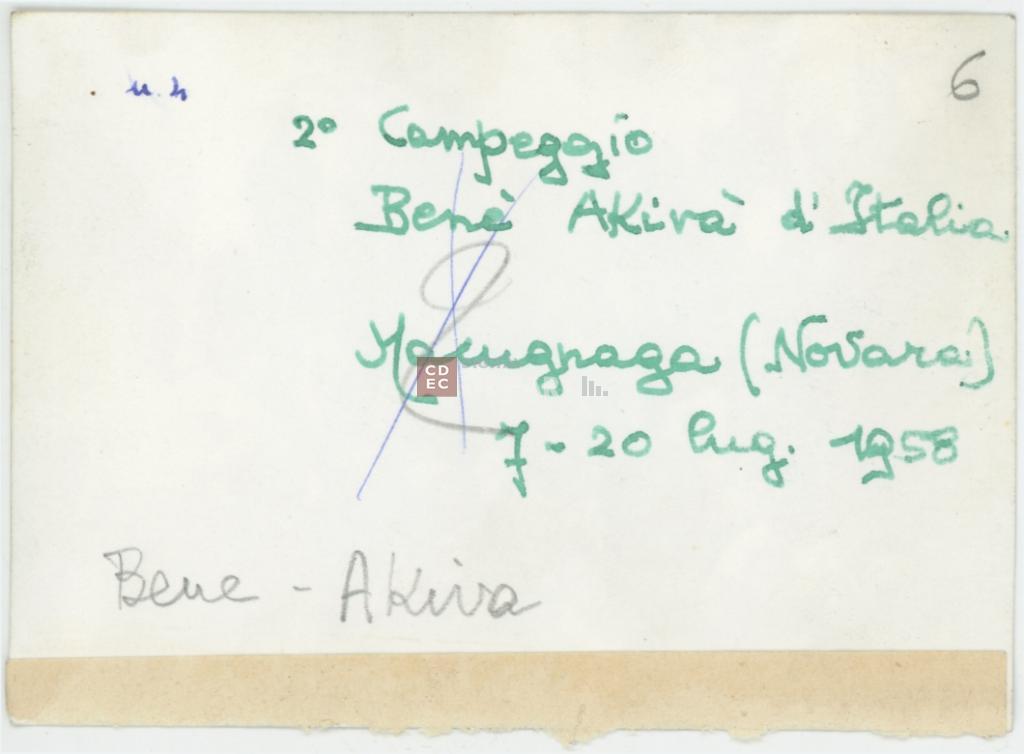 n. 4
6
2° Campeggio
Benè Akivà d'Italia
Macugnaga (Novara)
CD
EC
7-20 lug. 1958
Bene - Akiva